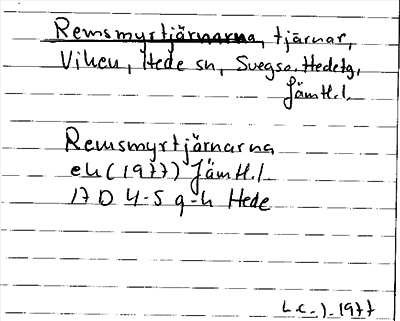 Remsmyrtjärnarna, tjärnar,
Viken, Hede sn, Svegs o. Hedetg,
Jämtl.l.
Remsmyrtjärnarna
ek (1977) Jämtl.l.
17 D 4-5 g-h Hede
L.C.J. 1977